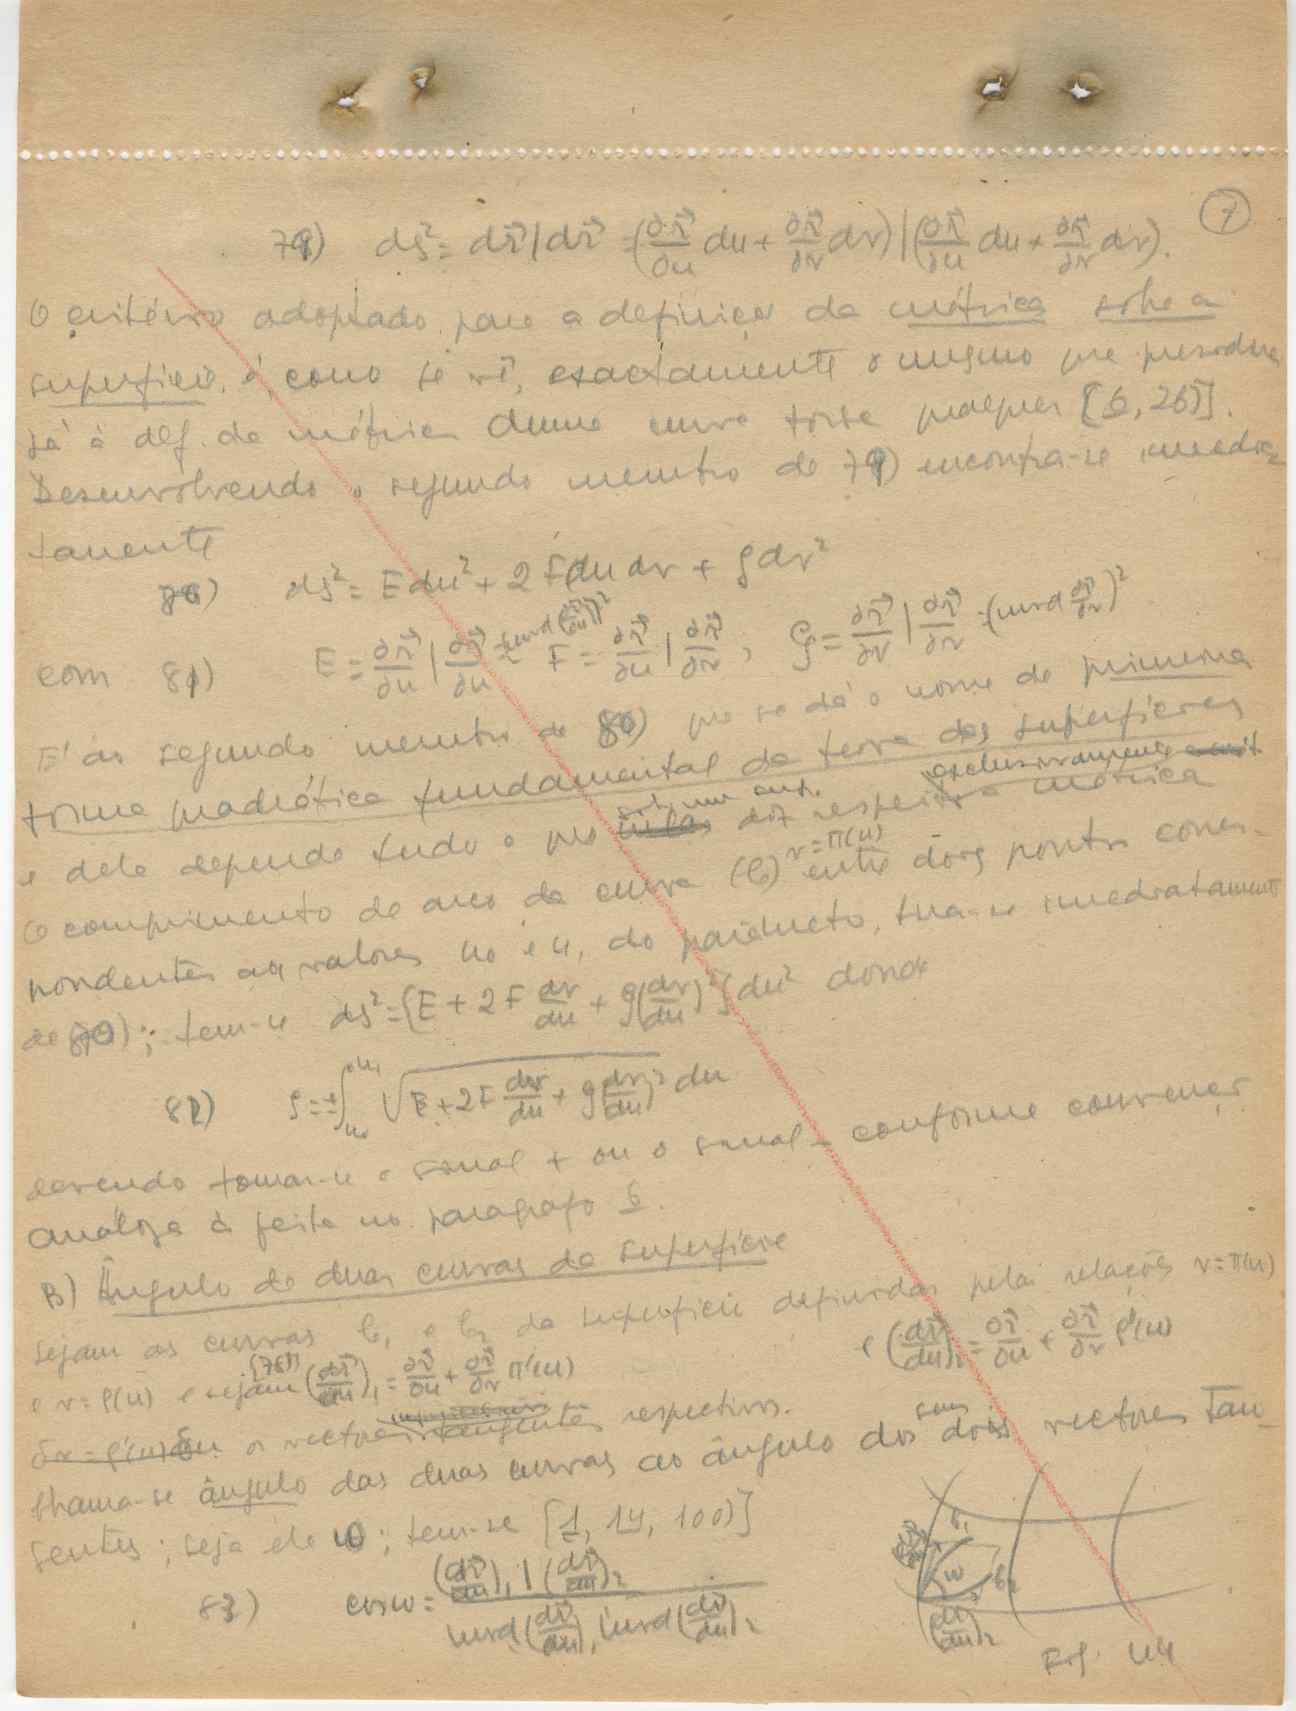 7
79) ds² = dr⃗ | dr⃗ = (∂r⃗/∂u du + ∂r⃗/∂v dv) | (∂r⃗/∂u du + ∂r⃗/∂v dv).
O critério adoptado para a definição da métrica sobre a
superfície, é, como se vê, exactamente o mesmo que presidiu
já à def. da métrica duma curva torsa qualquer [6, 26)].
Desenvolvendo o segundo membro de 79) encontra-se imedia-
tamente
80) ds² = E du² + 2 F du dv + G dv²
com 81) E = ∂r⃗/∂u | ∂r⃗/∂u = (mod ∂r⃗/∂u)² F = ∂r⃗/∂u | ∂r⃗/∂v ; G = ∂r⃗/∂v | ∂r⃗/∂v = (mod ∂r⃗/∂v)²
É ao segundo membro de 80) que se dá o nome de primeira
forma quadrática fundamental da teoria das superfícies
exclusivamente
e dela depende tudo o que diz respeito à métrica
O comprimento de arco da curva (C) v = π(u) entre dois pontos corres-
pondentes aos valores u₀ e u₁ do parâmetro, tira-se imediatamente
de 80); tem-se ds² = [E + 2F dv/du + G(dv/du)²] du² donde
82) s = ± ∫ᵤ₀ᵘ¹ √(E + 2F dv/du + G(dv/du)²) du
devendo tomar-se o sinal + ou o sinal - conforme convenção
análoga à feita no paragrafo 6.
B) Ângulo de duas curvas da superfície
Sejam as curvas C₁ e C₂ da superfície definidas pelas relações v = π(u)
e v = ρ(u) e sejam [78)] (dr⃗/du)₁ = ∂r⃗/∂u + ∂r⃗/∂v π'(u) e (dr⃗/du)₂ = ∂r⃗/∂u + ∂r⃗/∂v ρ'(u)
δv = ρ'(u) δu os vectores tangentes respectivos.
Chama-se ângulo das duas curvas ao ângulo dos seus dois vectores tan-
gentes; seja ele ω; tem-se [1, 14, 100)]
83) cos ω = (dr⃗/du)₁ | (dr⃗/du)₂ / mod (dr⃗/du)₁ mod (dr⃗/du)₂
C₁
ω
C₂
(dr⃗/du)₂
Fig. 44